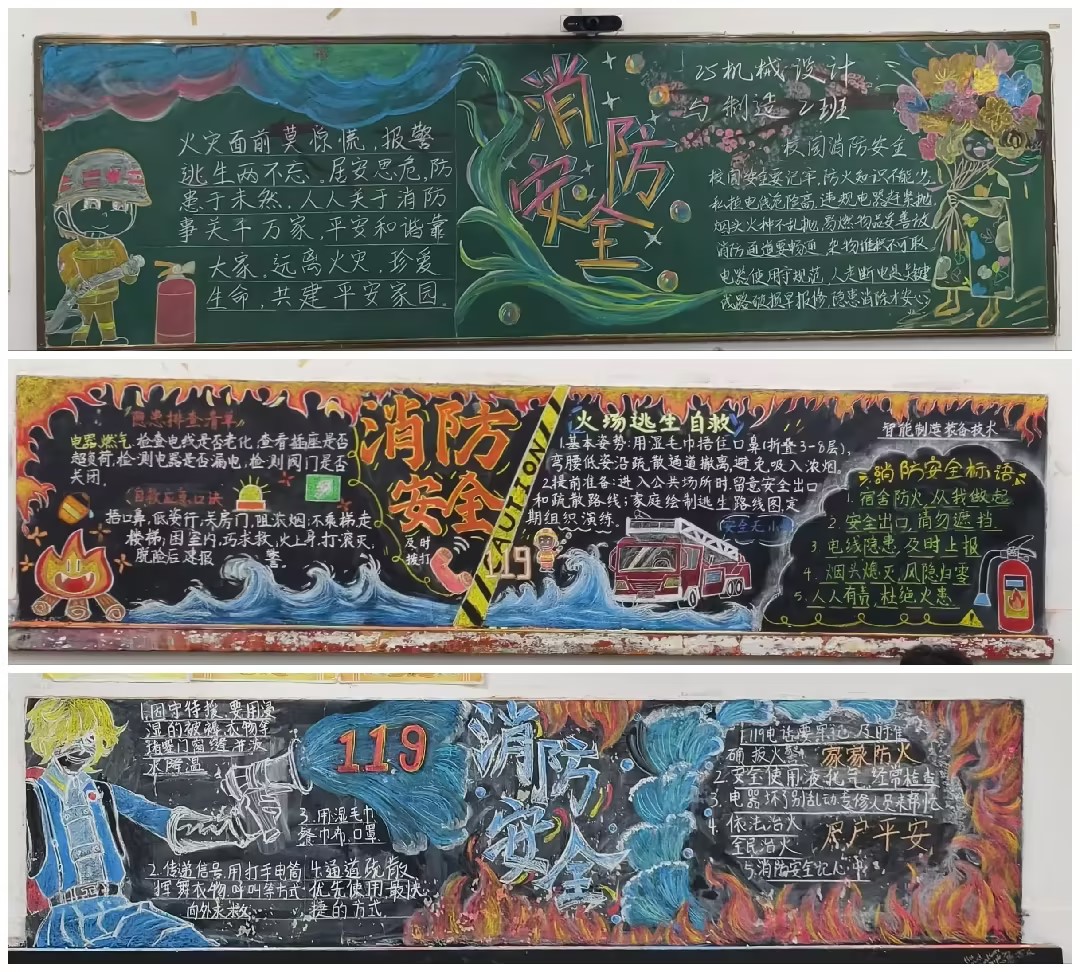 火灾面前莫惊慌,报警
逃生两不忘.居安思危,防
患于未然,人人关于消防
事关千万家,平安和谐靠
大家,远离火灾,珍爱
生命,共建平安家园.
消防
安全
25机械设计
与制造2班
校园消防安全
校园安全要记牢,防火知识不能少.
私拉电线危险高,违规电器赶紧抛
烟头火种不乱抛,易燃物品妥善放
消防通道要畅通,杂物堆积不可取
电器使用守规范,人走断电是关键
线路破损早报修,隐患消除才安心
隐患排查清单
电器燃气,检查电线是否老化,查看插座是否
超负荷,检测电器是否漏电,检测阀门是否
关闭.
自救应急口诀
捂口鼻,低姿行,关房门,阻浓烟;不乘梯走
楼梯;困室内,巧求救,火上身,打滚灭,
脱险后速报警.
消防
安全
及时
拨打
119
CAUTION
火场逃生自救
1.基本姿势:用湿毛巾捂住口鼻(折叠3-8层),
弯腰低姿沿疏散通道撤离,避免吸入浓烟.
2.提前准备:进入公共场所时,留意安全出口
和疏散路线;家庭绘制逃生路线图定
期组织演练.
安全无小
智能制造装备技术
消防安全标语
1.宿舍防火,从我做起
2.安全出口,请勿遮挡.
3.电线隐患,及时上报
4.烟头熄灭,风隐归零
5.人人有责,杜绝火患.
1.固守待援,要用浸
湿的被褥衣物等
堵塞门窗缝并泼
水降温
119
3.用湿毛巾
餐巾布,口罩
2.传递信号,用打手电筒
挥舞衣物,呼叫等方式
向外求救
4.通道疏散
优先使用最快
捷的方式
消防
安全
1.119电话要牢记,及时准
确报火警 家家防火
2.安全使用液化气,经常检查
3.电器坏了别乱动,专修人员来帮忙
4.依法治火
全民治火 户户平安
5.消防安全记心中